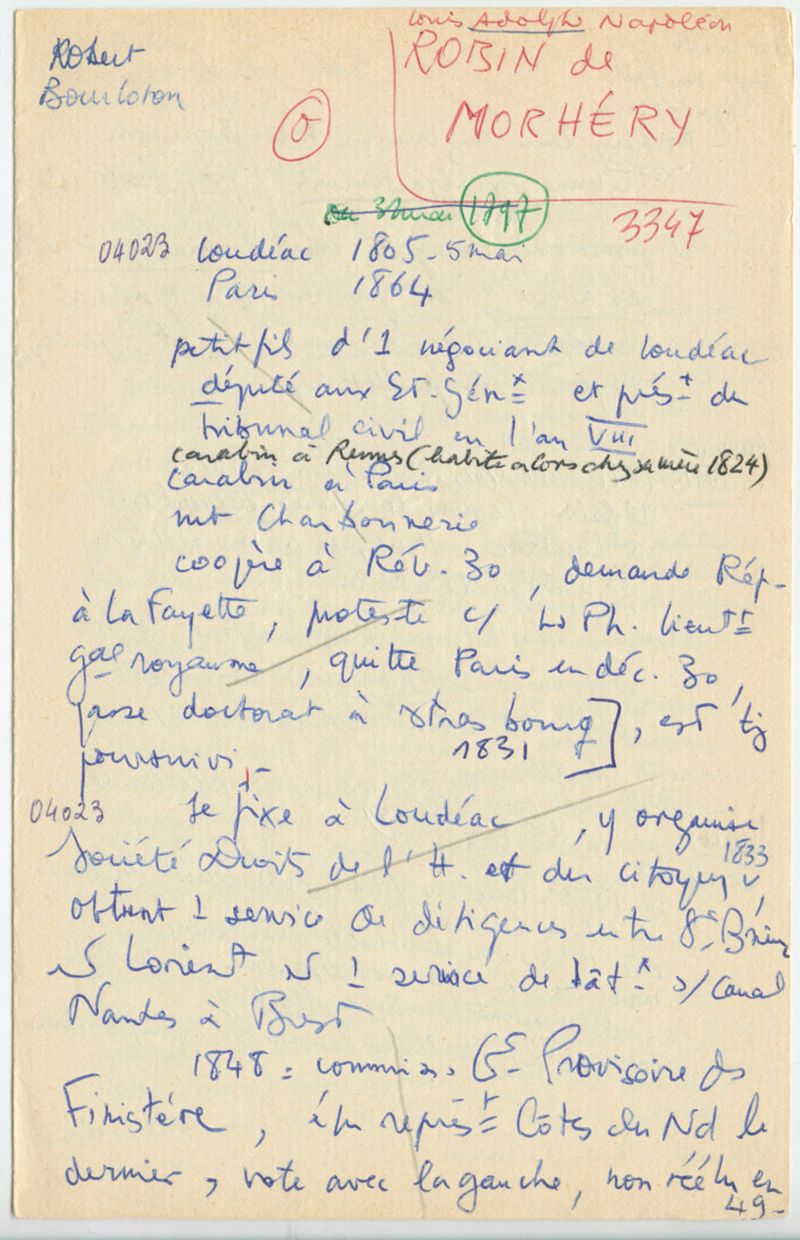 Louis Adolph Napoléon
Robert
Bourloton
ROBIN de
MORHÉRY
0
ou 31 mai 1797
3347
04023 Loudéac 1805-5 mai
Paris 1864
petit fils d'1 négociant de Loudéac
député aux Et.Génx et prést du
tribunal civil en l'an VIII
carabin à Rennes (habite alors chez sa mère 1824)
carabin à Paris
mt Charbonnerie
coopère à Rév. 30, demande Rép-
à La Fayette, proteste c/ Ls Ph. lieutt
gal royaume, quitte Paris en déc. 30,
passe doctorat à Strasbourg], est tj
1831
poursuivi.
04023 se fixe à Loudéac, y organise
Société Droits de l'H. et du citoyen
1833
obtient 1 service de diligences entre St Brieuc
Lorient 1 service de bâtx s/ canal
Nantes à Brest
1848 = commiss. Gt Provisoire ds
Finistère, élu représt Côtes du Nd le
dernier, vote avec la gauche, non réélu en
49-